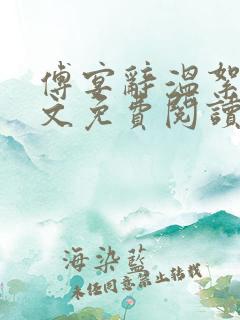 傅宴辭溫絮
文免費閱讀
海染藍
未經同意禁止轉載